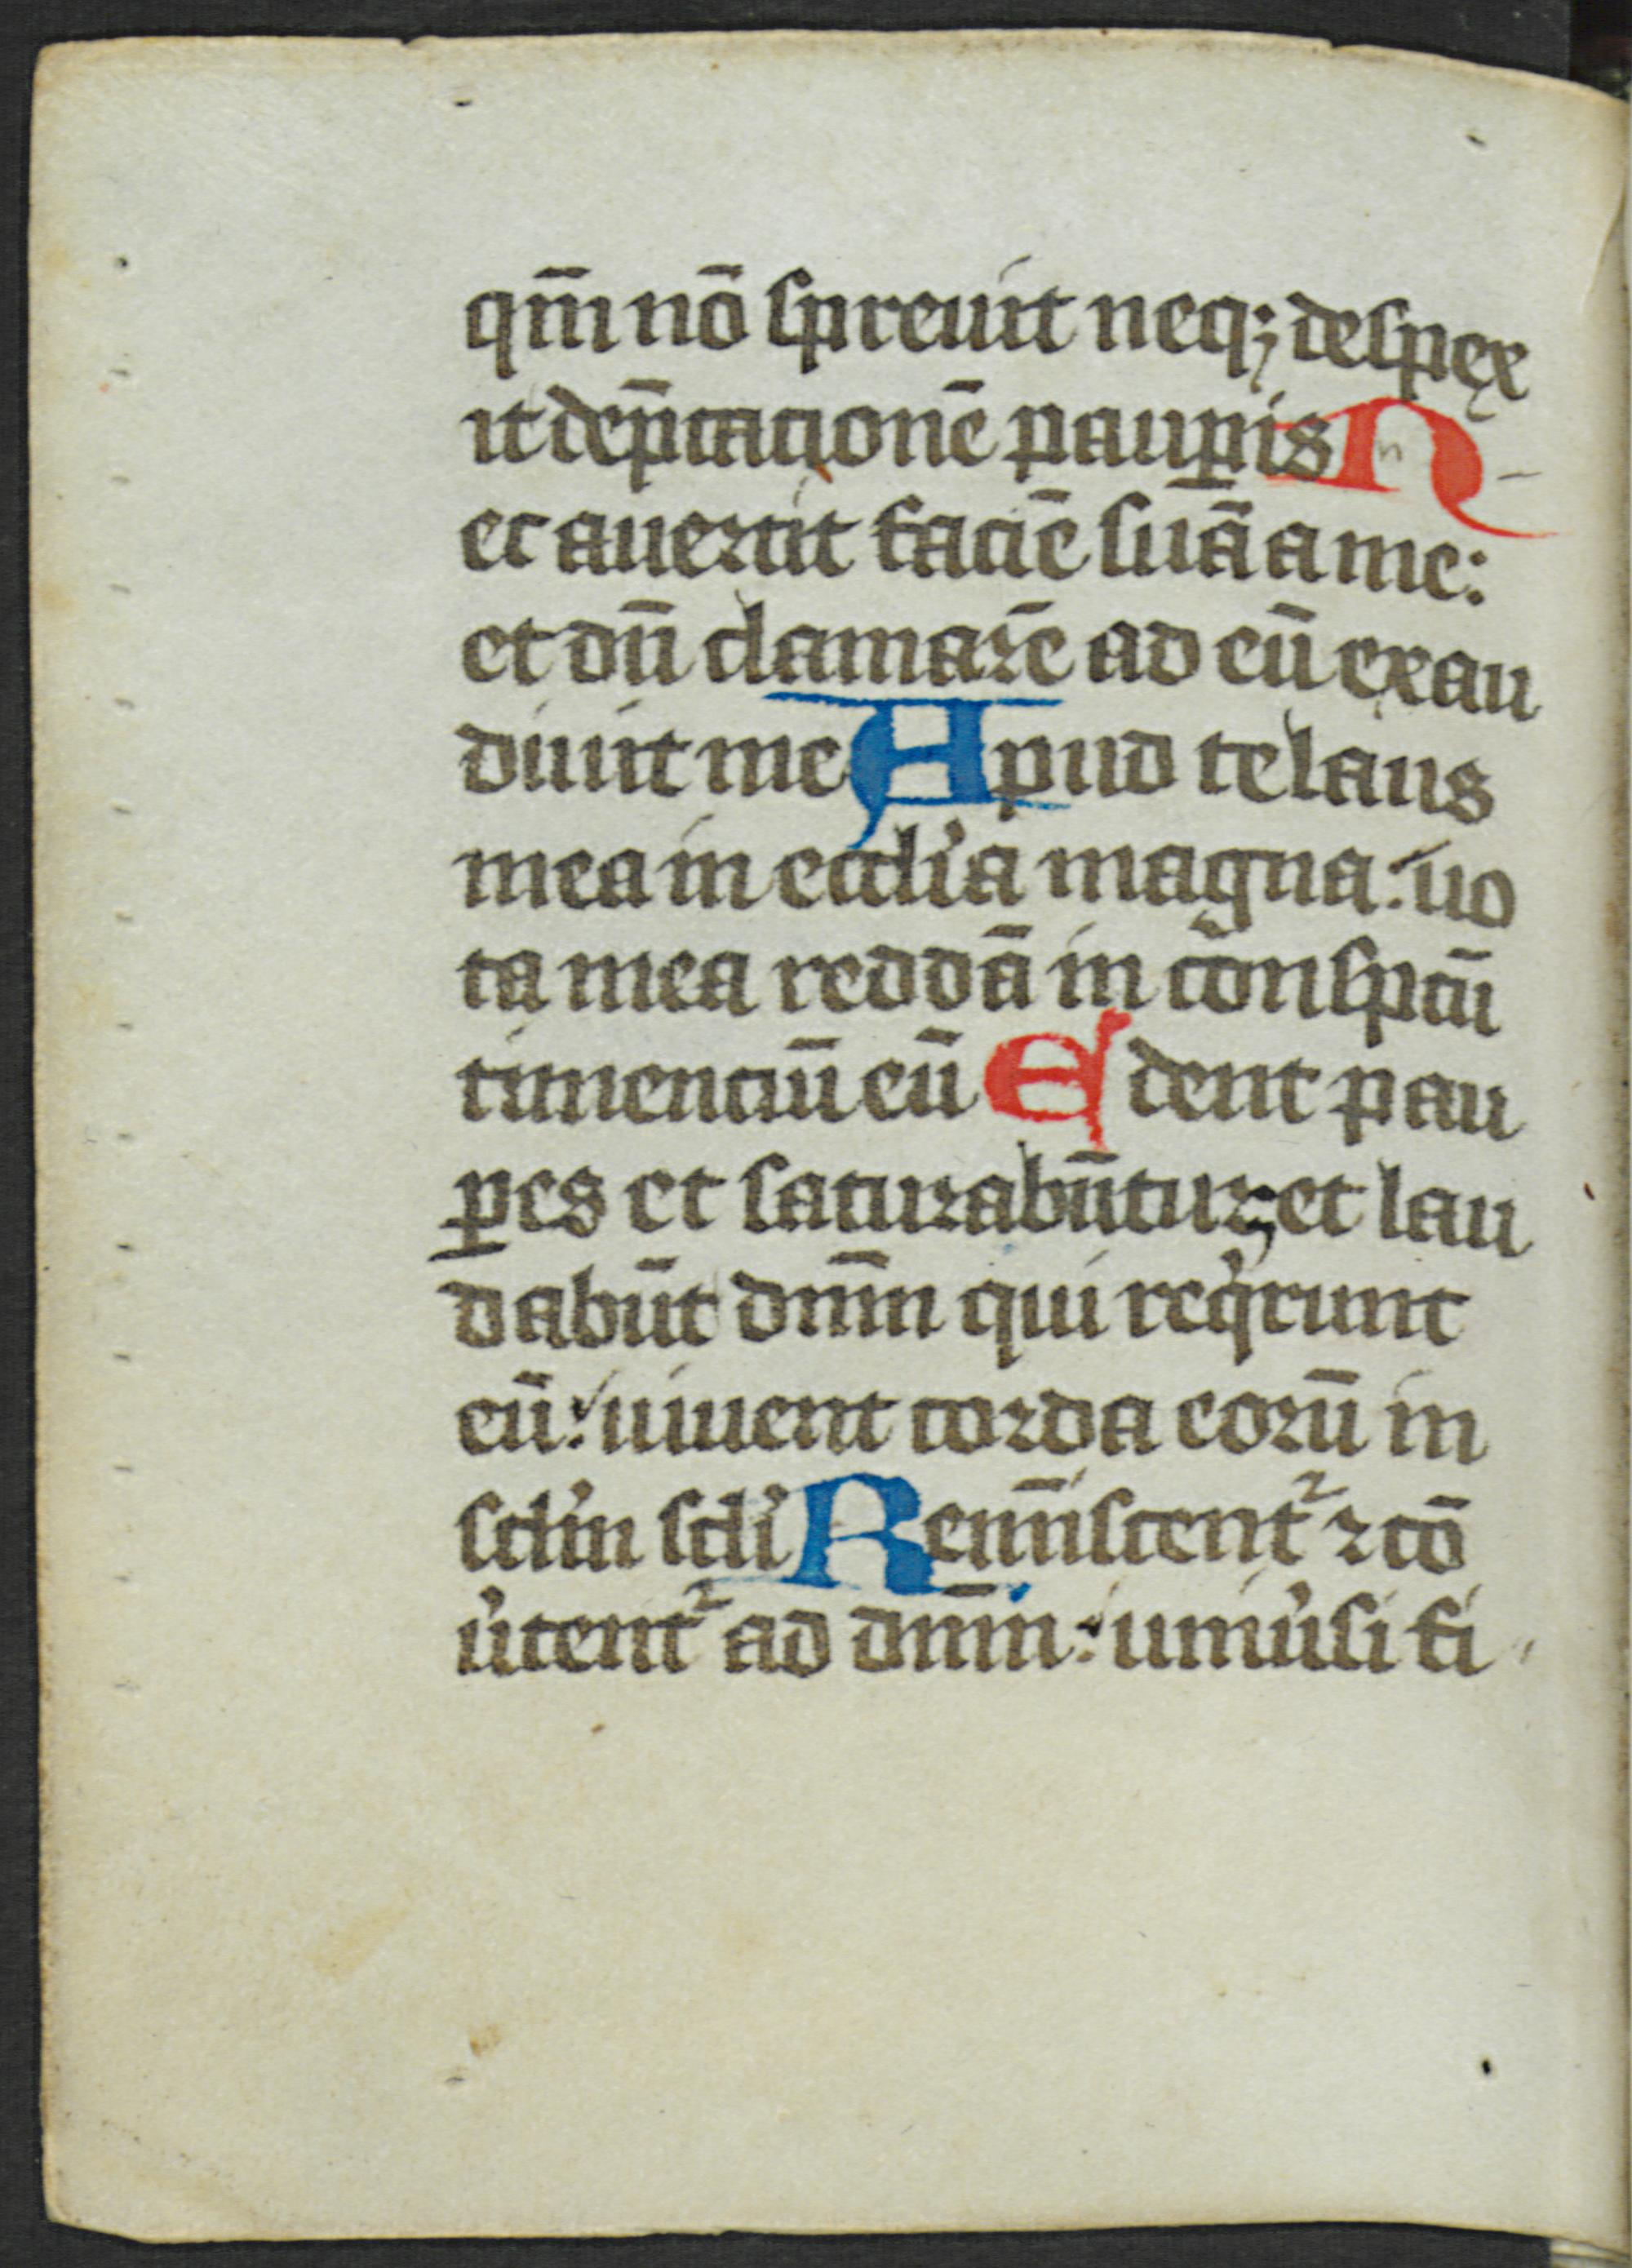 qm̄ nō spreuit neq; despex
it dep̄cationē paup̱is N
ec auertit faciē suā a me:
et dū clamarē ad eū exau
diuit me Apud te laus
mea in eccl'ia magna: uo
ta mea reddā in cōnsp̄cū
timenciū eū Edent pau
p̱es et saturabūtur; et lau
dabūt dnm̄ qui req'runt
eū: uiuent corda eorū in
sc'lm sc'li Remīscentᷣ ⁊ cō
u'tentᷣ ad dnm̄: uniu'si fi